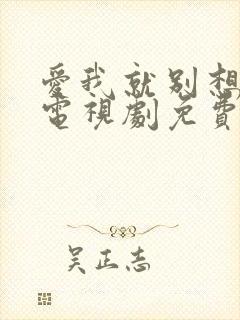 愛我就別想
電視劇免費
吴正志